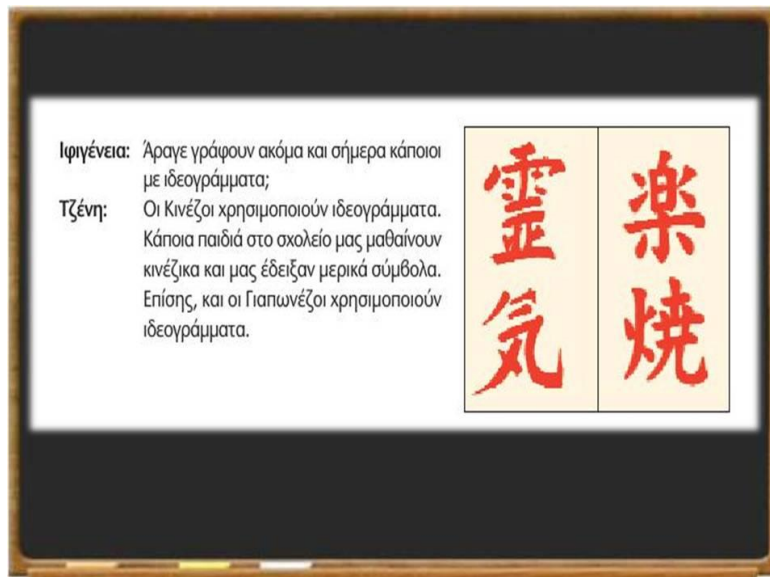 Ιφιγένεια: Άραγε γράφουν ακόμα και σήμερα κάποιοι
με ιδεογράμματα;
Τζένη: Οι Κινέζοι χρησιμοποιούν ιδεογράμματα.
Κάποια παιδιά στο σχολείο μας μαθαίνουν
κινέζικα και μας έδειξαν μερικά σύμβολα.
Επίσης, και οι Γιαπωνέζοι χρησιμοποιούν
ιδεογράμματα.
霊気
楽焼